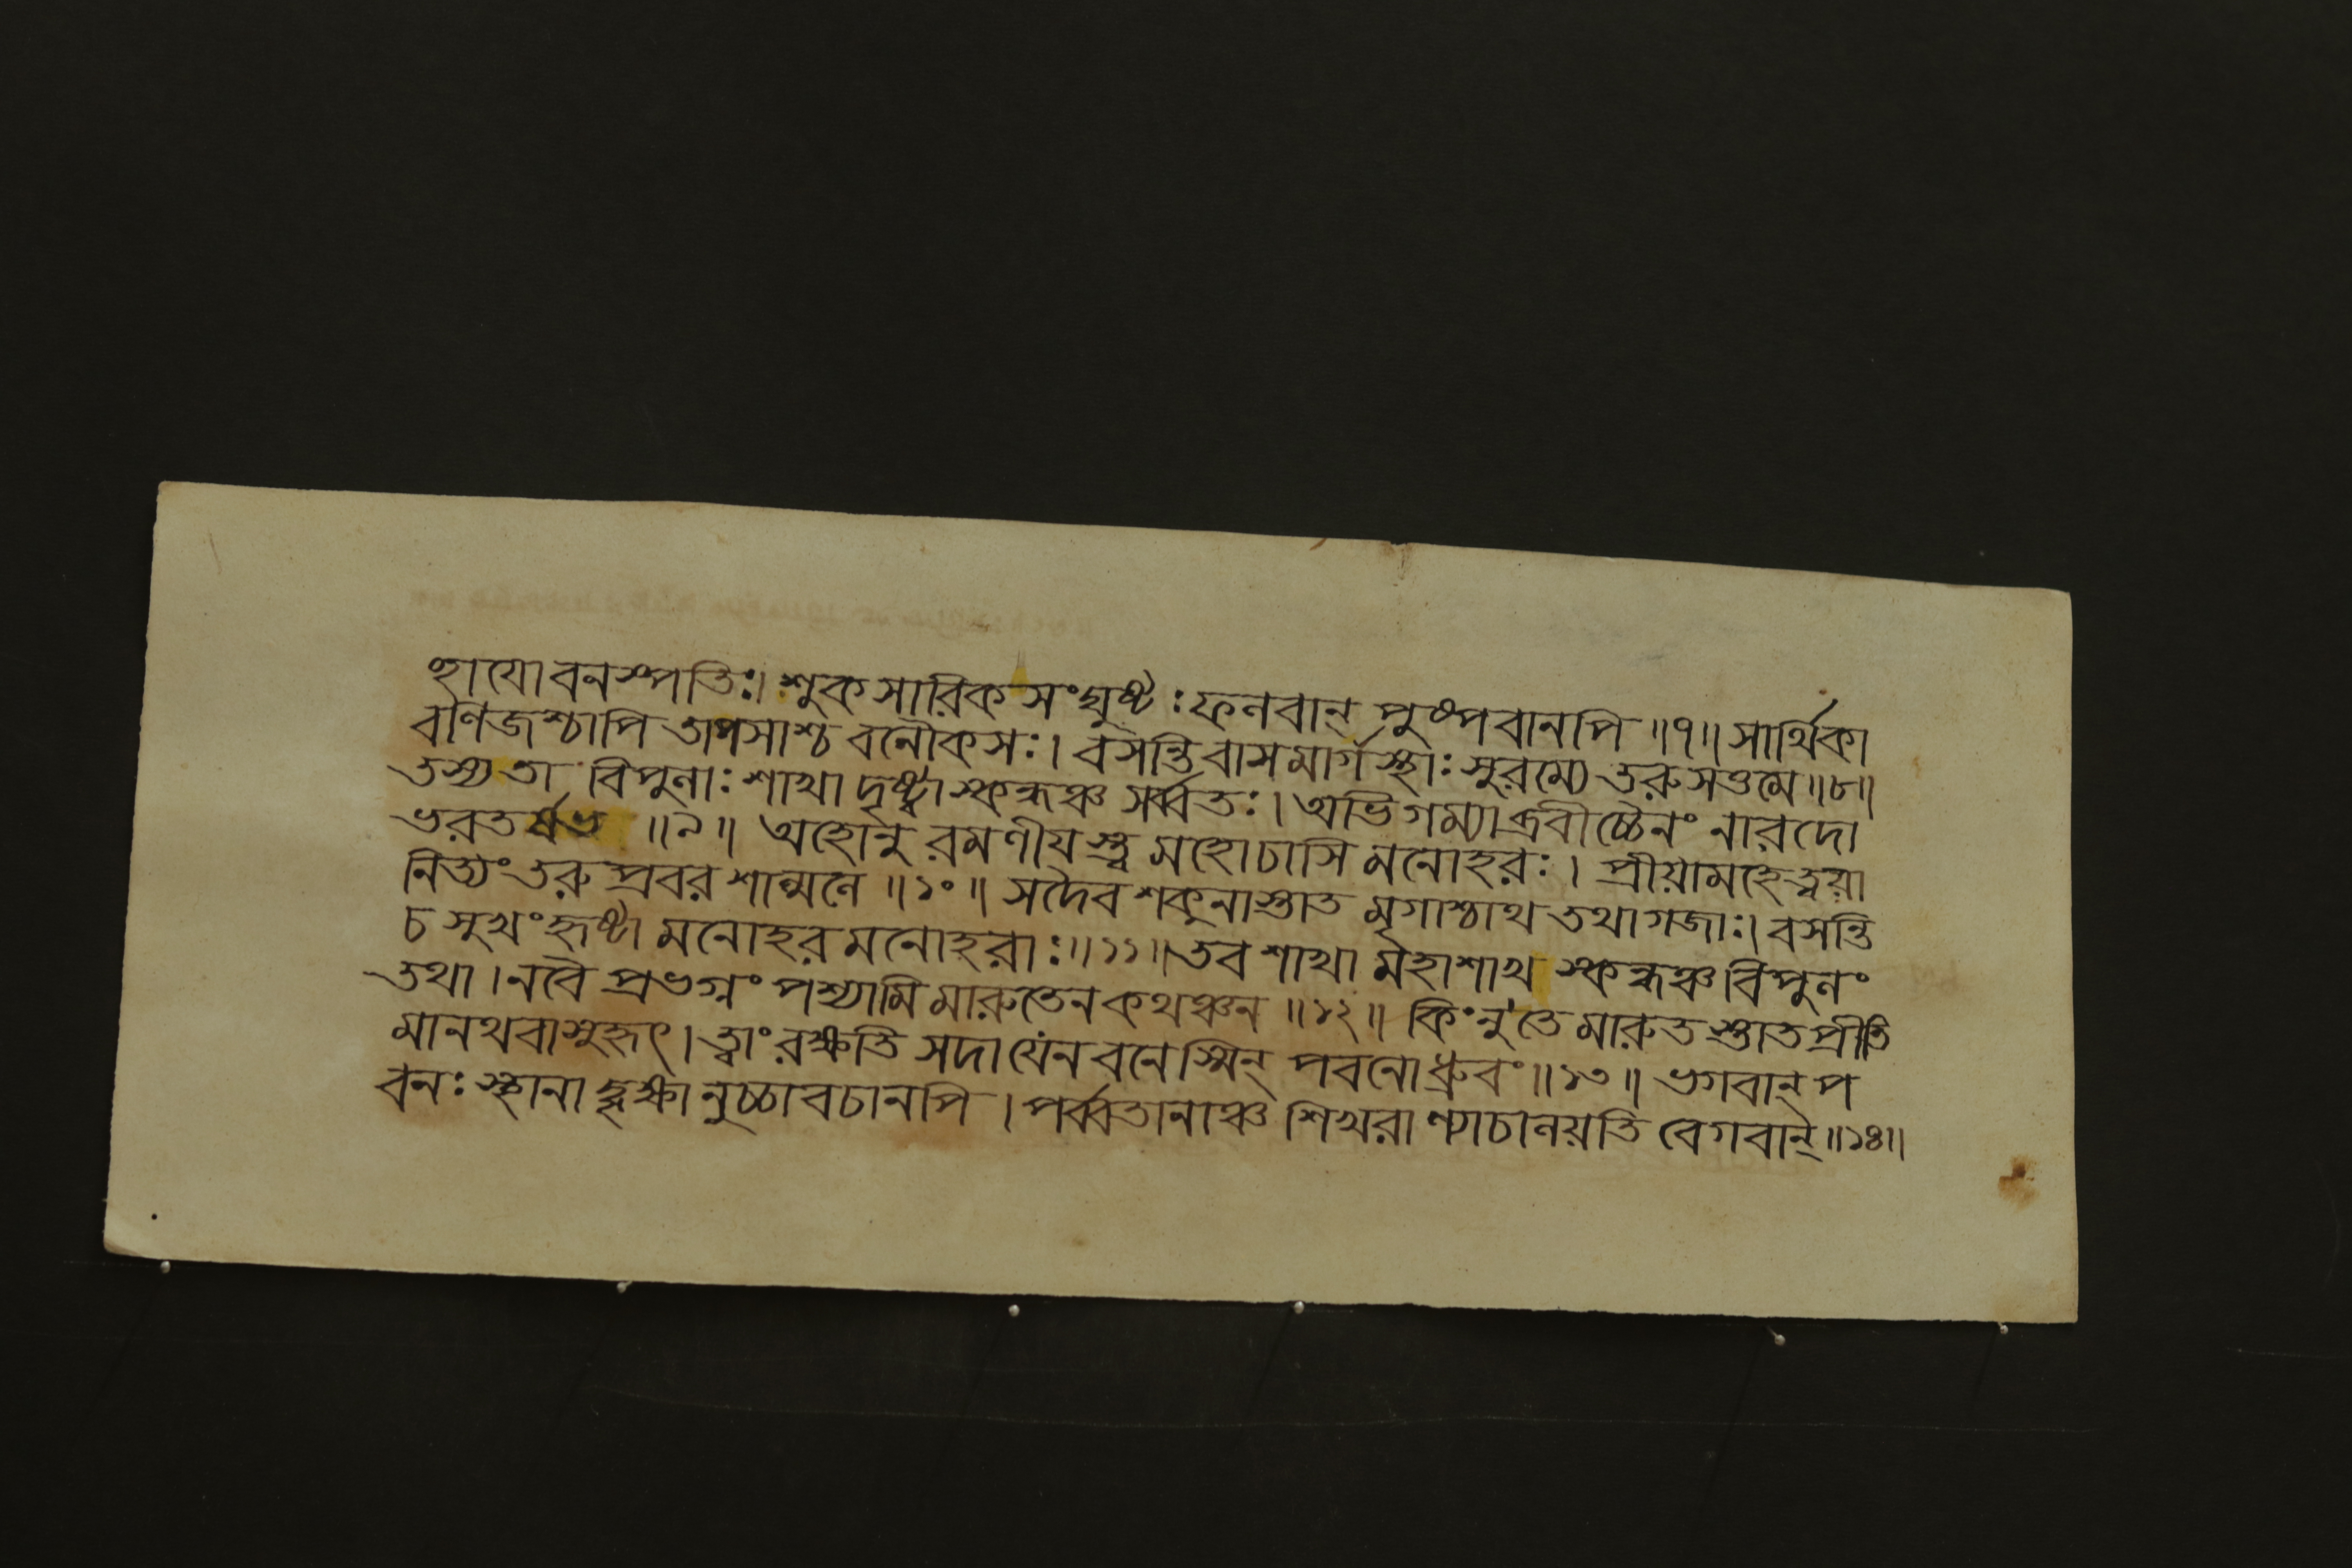 হাযো বনস্পতিঃ। শুকসারিকসংঘুষ্টঃ ফলবান্ পুষ্পবানপি ॥৭॥ সার্থিকা
বণিজশ্চাপি তাপসাশ্চ বনৌকসঃ। বসন্তি বাসমার্গস্থাঃ সুরম্যে তরুসত্তমে ॥৮॥
তস্য তা বিপুলাঃ শাখা দৃষ্ট্বা স্কন্ধঞ্চ সর্ব্বতঃ। অভিগম্যাব্রবীচ্চৈনং নারদো
ভরতর্ষভ ॥৯॥ অহোনু রমণীযস্ত্ব মহোচাসি মনোহরঃ। প্রীয়ামহে ত্বয়া
নিত্যং তরুপ্রবর শাল্মলে ॥১০॥ সদৈব শকুনাস্তাত মৃগাশ্চাথ তথা গজাঃ। বসন্তি
চ সুখং হৃষ্টা মনোহর মনোহরাঃ ॥১১॥ তব শাখা মহাশাখ স্কন্ধঞ্চ বিপুলং
তথা। নবৈ প্রভগ্নং পশ্যামি মারুতেন কথঞ্চন ॥১২॥ কিংনু তে মারুতস্তাত প্রীতি
মানথবা সুহৃৎ। ত্বাং রক্ষতি সদা যেন বনেস্মিন্ পবনো ধ্রুবং ॥১৩॥ ভগবান্ প
বনঃ স্থানাদ্বৃক্ষানুচ্চাবচানপি। পর্ব্বতানাঞ্চ শিখরাণ্যাচালয়তি বেগবান্ ॥১৪॥